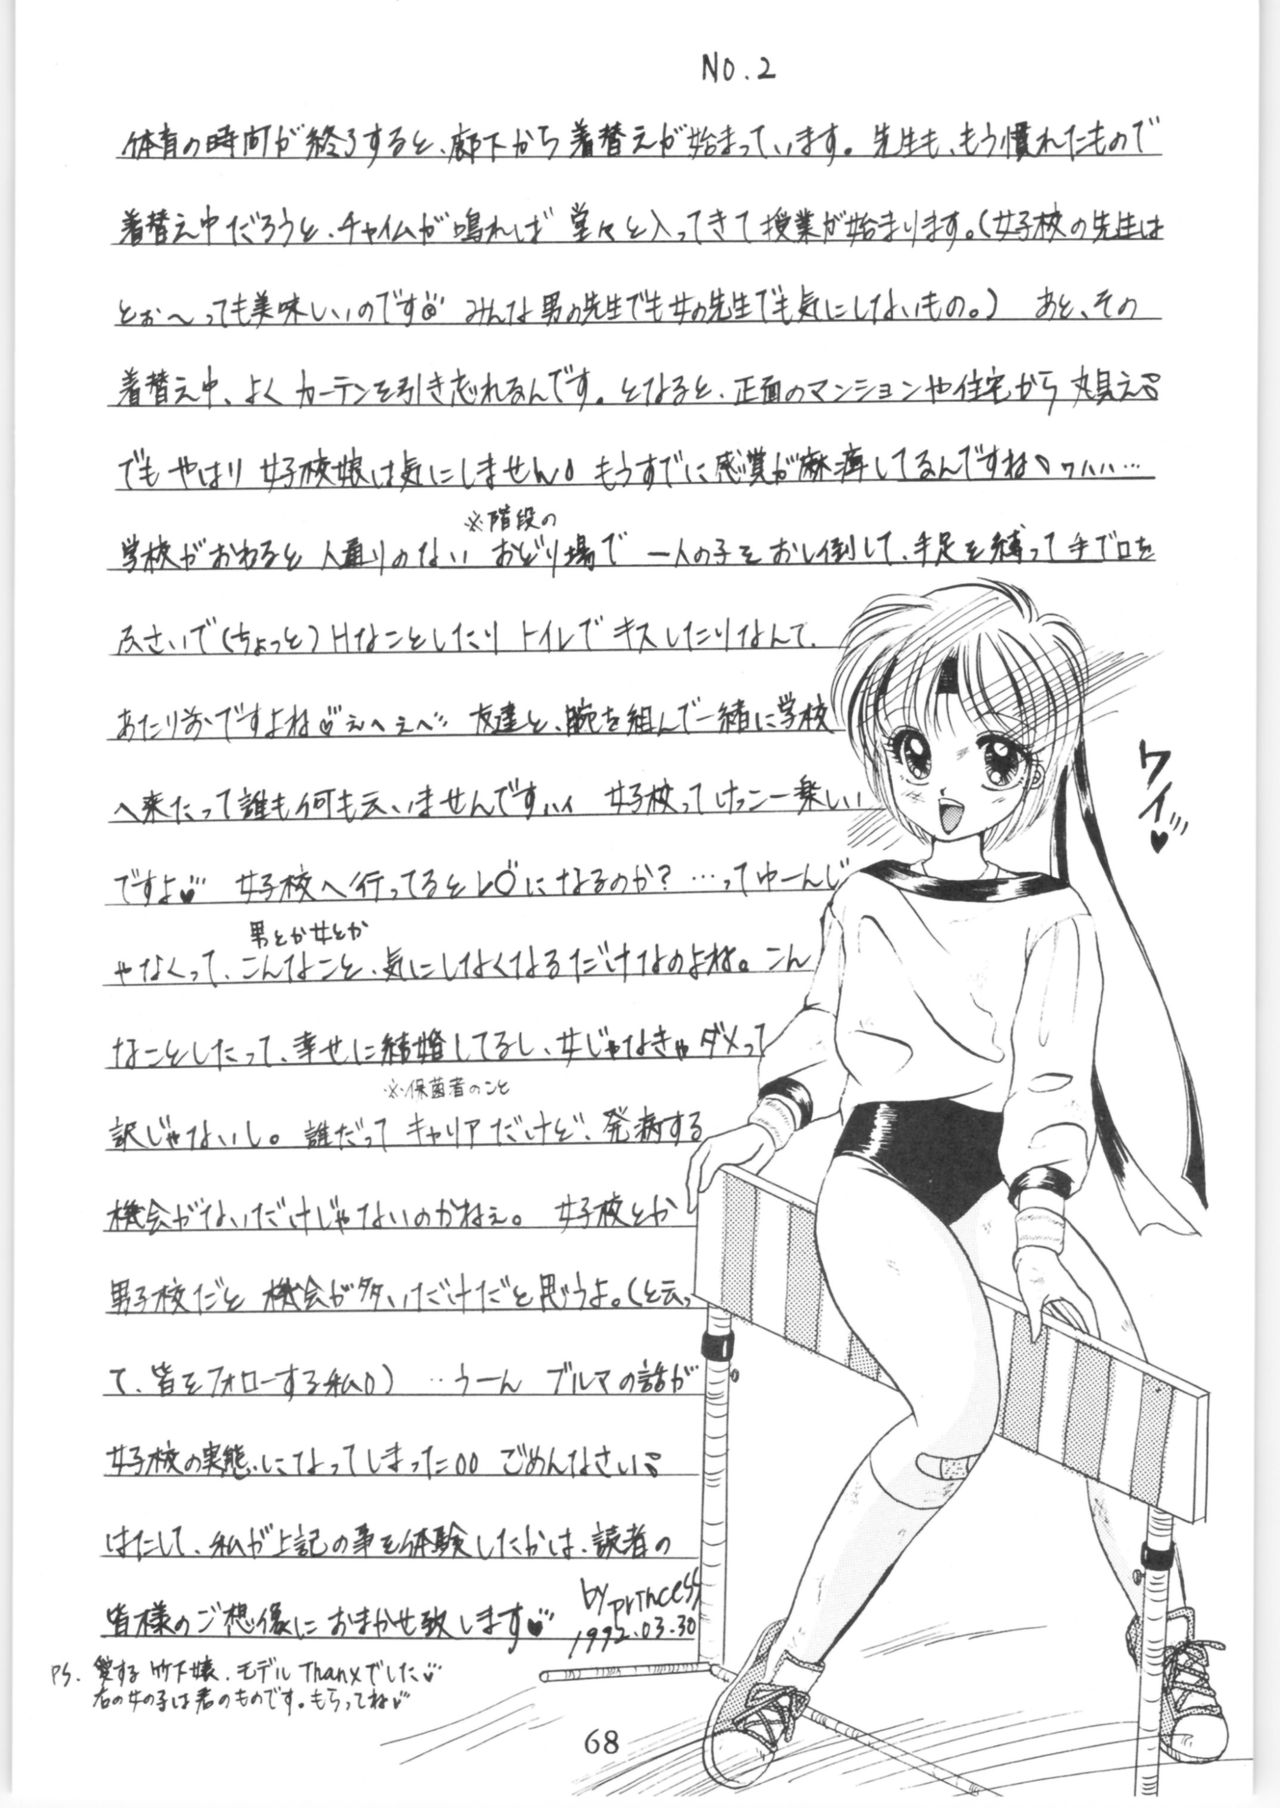 NO.2
体育の時間が終了すると、廊下から着替えが始まっています。先生も、もう慣れたもので
着替え中だろうと、チャイムが鳴れば堂々と入ってきて授業が始まります。(女子校の先生は
とぉ〜っても美味しいのです みんな男の先生でも女の先生でも気にしないもの。) あと、その
着替え中、よくカーテンを引き忘れるんです。となると、正面のマンションや住宅から丸見え
でもやはり女子校娘は気にしません。もうすでに感覚が麻痺してるんですね ワハハ…
※階段の
学校がおわると人通りのない おどり場で 一人の子をおし倒して、手足を縛って手で口を
ふさいで(ちょっと)Hなことしたり トイレでキスしたりなんて、
あたり前ですよね♡えへえへ 友達と、腕を組んで一緒に学校
へ来たって誰も何も云いませんですハイ 女子校ってけっこー楽しい
ですよ♡ 女子校へ行ってるとL○になるのか?…ってゆーんじ
男とか女とか
ゃなくって、こんなこと、気にしなくなるだけなのよね。こん
なことしたって、幸せに結婚してるし、女じゃなきゃダメって
※保菌者のこと
訳じゃないし。誰だってキャリアだけど、発病する
機会がないだけじゃないのかねぇ。女子校とか
男子校だと 機会が多いだけだと思うよ。(と云っ
て、皆をフォローする私) …うーん ブルマの話が
女子校の実態になってしまった ごめんなさい
はたして、私が上記の事を体験したかは、読者の
皆様のご想像におまかせ致します♡
by princess
1992.03.30
PS. 愛する竹下嬢、モデルThanxでした
右の女の子は君のものです。もらってね♡
ワイッ♥
68